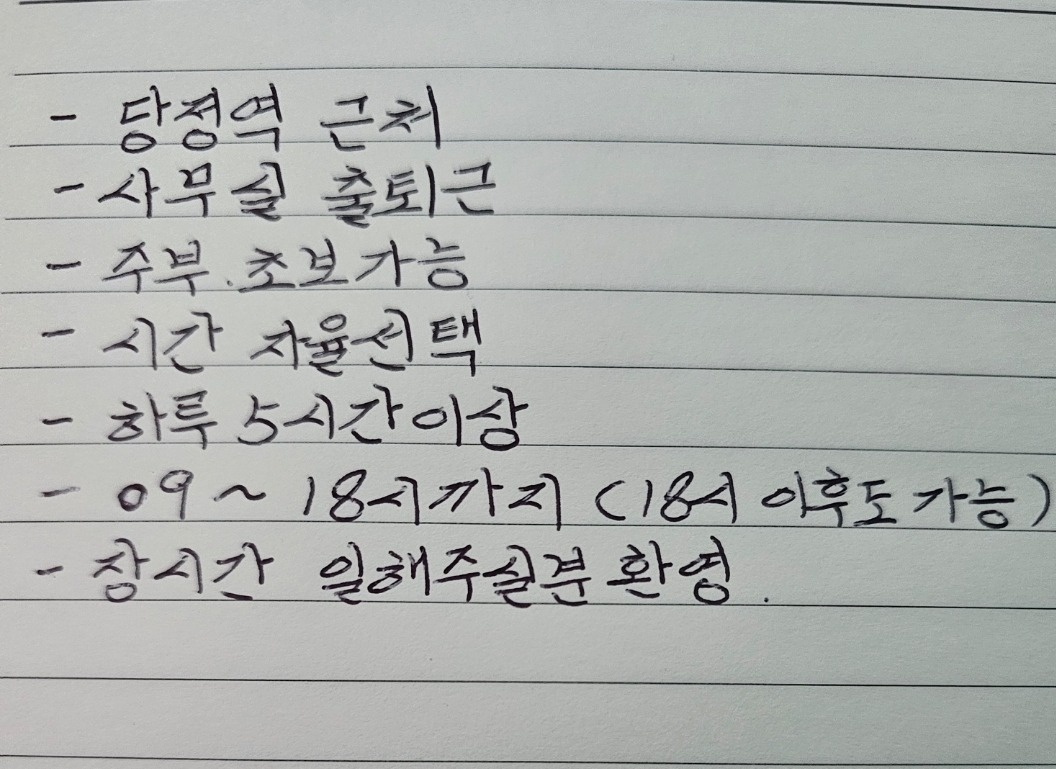 - 당정역 근처
- 사무실 출퇴근
- 주부.초보가능
- 시간 자율선택
- 하루 5시간이상
- 09~18시까지 (18시 이후도 가능)
- 장시간 일해주실분 환영.